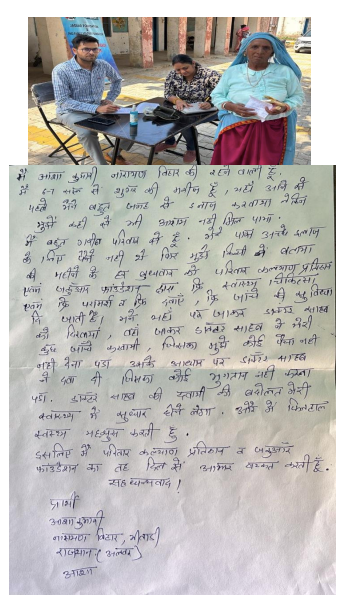 में आशा कुमारी नारायण विहार की रहने वाली हूँ।
में 6-7 साल से शुगर की मरीज हूँ, यहाँ आने से
पहले मैंने बहुत जगह से इलाज करवाया लेकिन
मुझे कही से भी आराम नहीं मिल पाया।
में बहुत गरीब परिवार से हूँ. मेरे पास अच्छे इलाज
के लिए पैसे नहीं थे फिर मुझे किसी ने बताया
की महीने के हर बुधवार को परिवार कल्याण प्रतिष्ठान
एवम फाउंडेशन द्वारा कि स्वास्थ्य चिकित्सा,
एवम कि परामर्श व कि दवाए, कि जांचे की सुविधा
दि जाती है। मैंने यहाँ पर आकर डॉक्टर साहब
को दिखाया, यहाँ आकर डॉक्टर साहब ने मेरी
कुछ जाँचे करवायी, जिसका मुझे कोई पैसा नहीं
नहीं देना पड़ा उसके आधार पर डॉक्टर साहब
ने दवा दी जिसका कोई भुगतान नहीं करना
पड़ा. डॉक्टर साहब की दवायी की बदौलत मेरी
स्वास्थ्य में सुधार होने लगा. और में फिलहाल
स्वस्थ महसूस करती हूँ.
इसलिए में परिवार कल्याण प्रतिष्ठान व
फाउंडेशन का तह दिल से आभार व्यक्त करती हूँ.
सहधन्यवाद!
प्रार्थी
आशा कुमारी
नारायण विहार, भीवाडी
राजस्थान (अलवर)
आशा